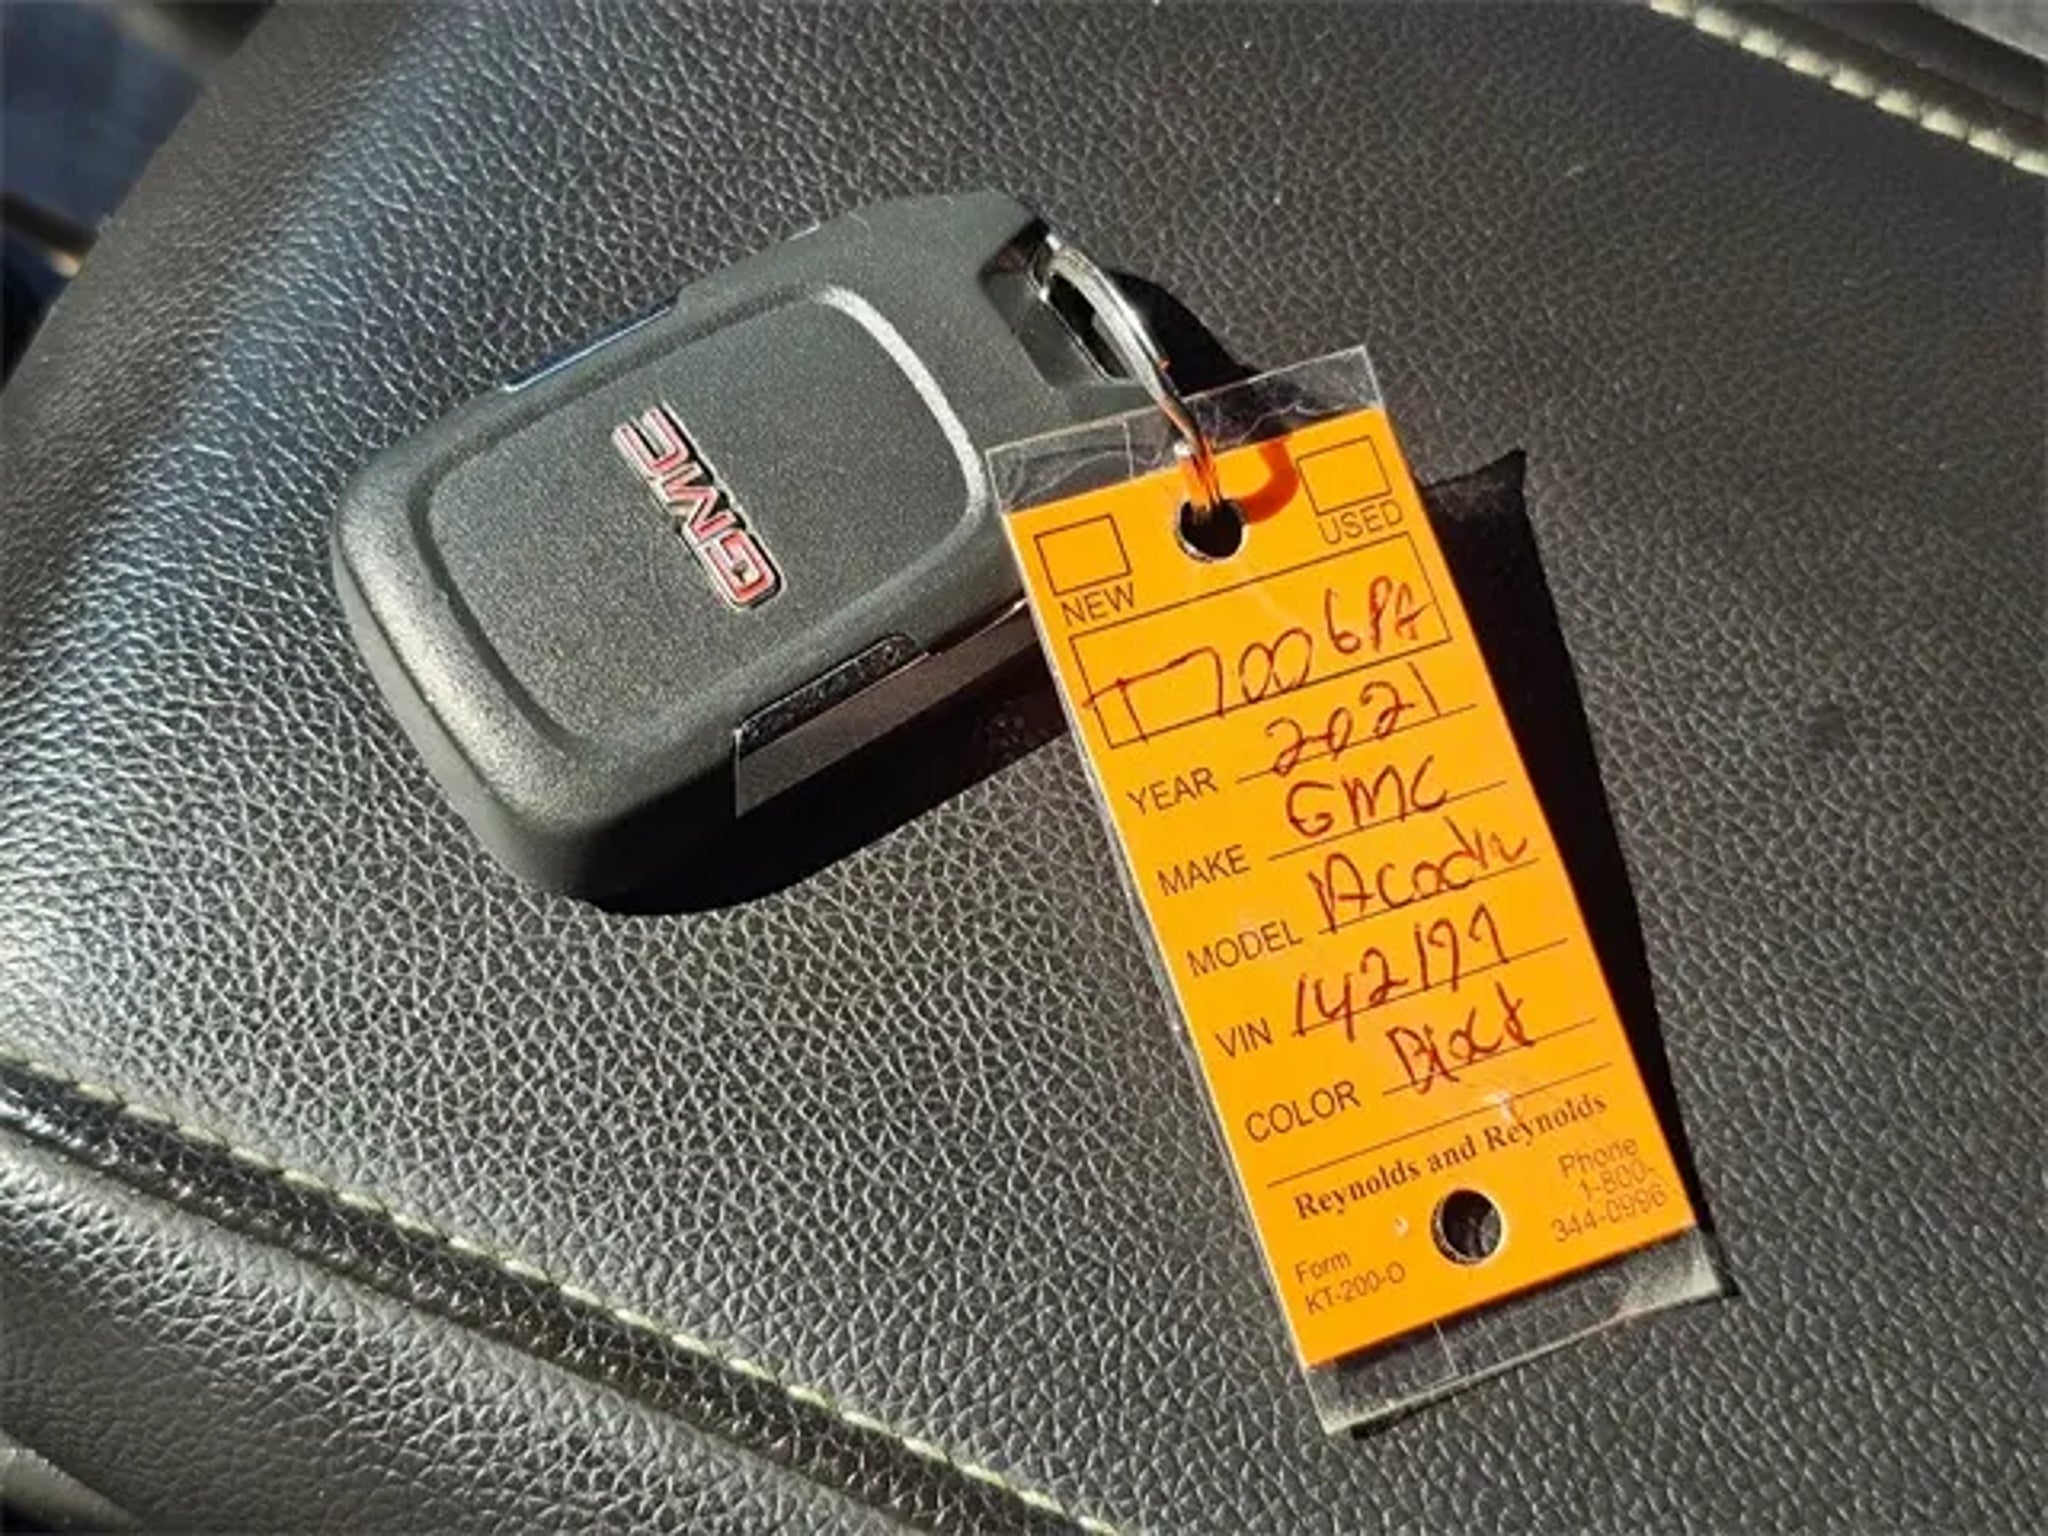 GMC
NEW
USED
T7006PA
YEAR 2021
MAKE GMC
MODEL Acadia
VIN 142197
COLOR Black
Reynolds and Reynolds
Form
KT-200-O
Phone
1-800-
344-0996